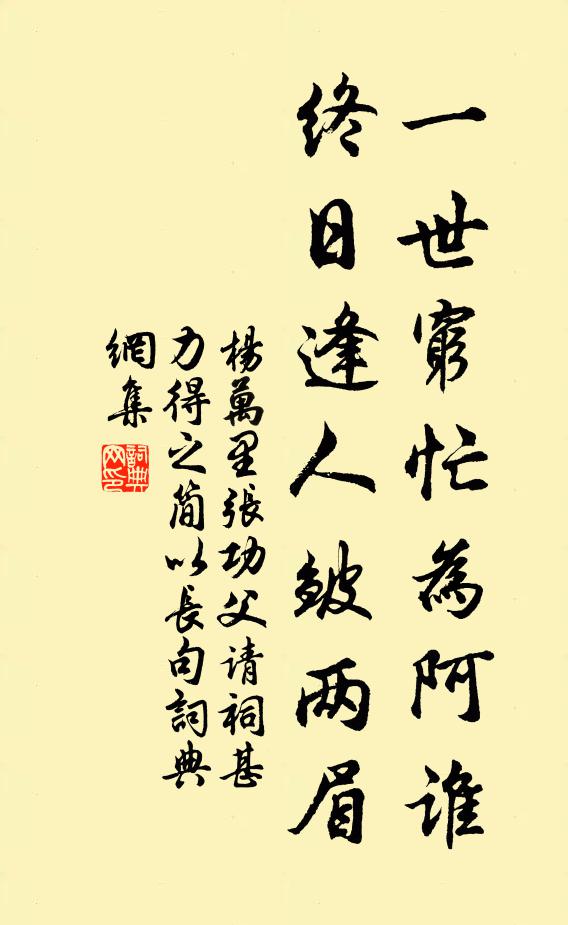 一世窮忙為阿誰
終日逢人皱两眉
楊萬里張功父请祠甚
力得之简以長句詞典
網集
詞典
网印